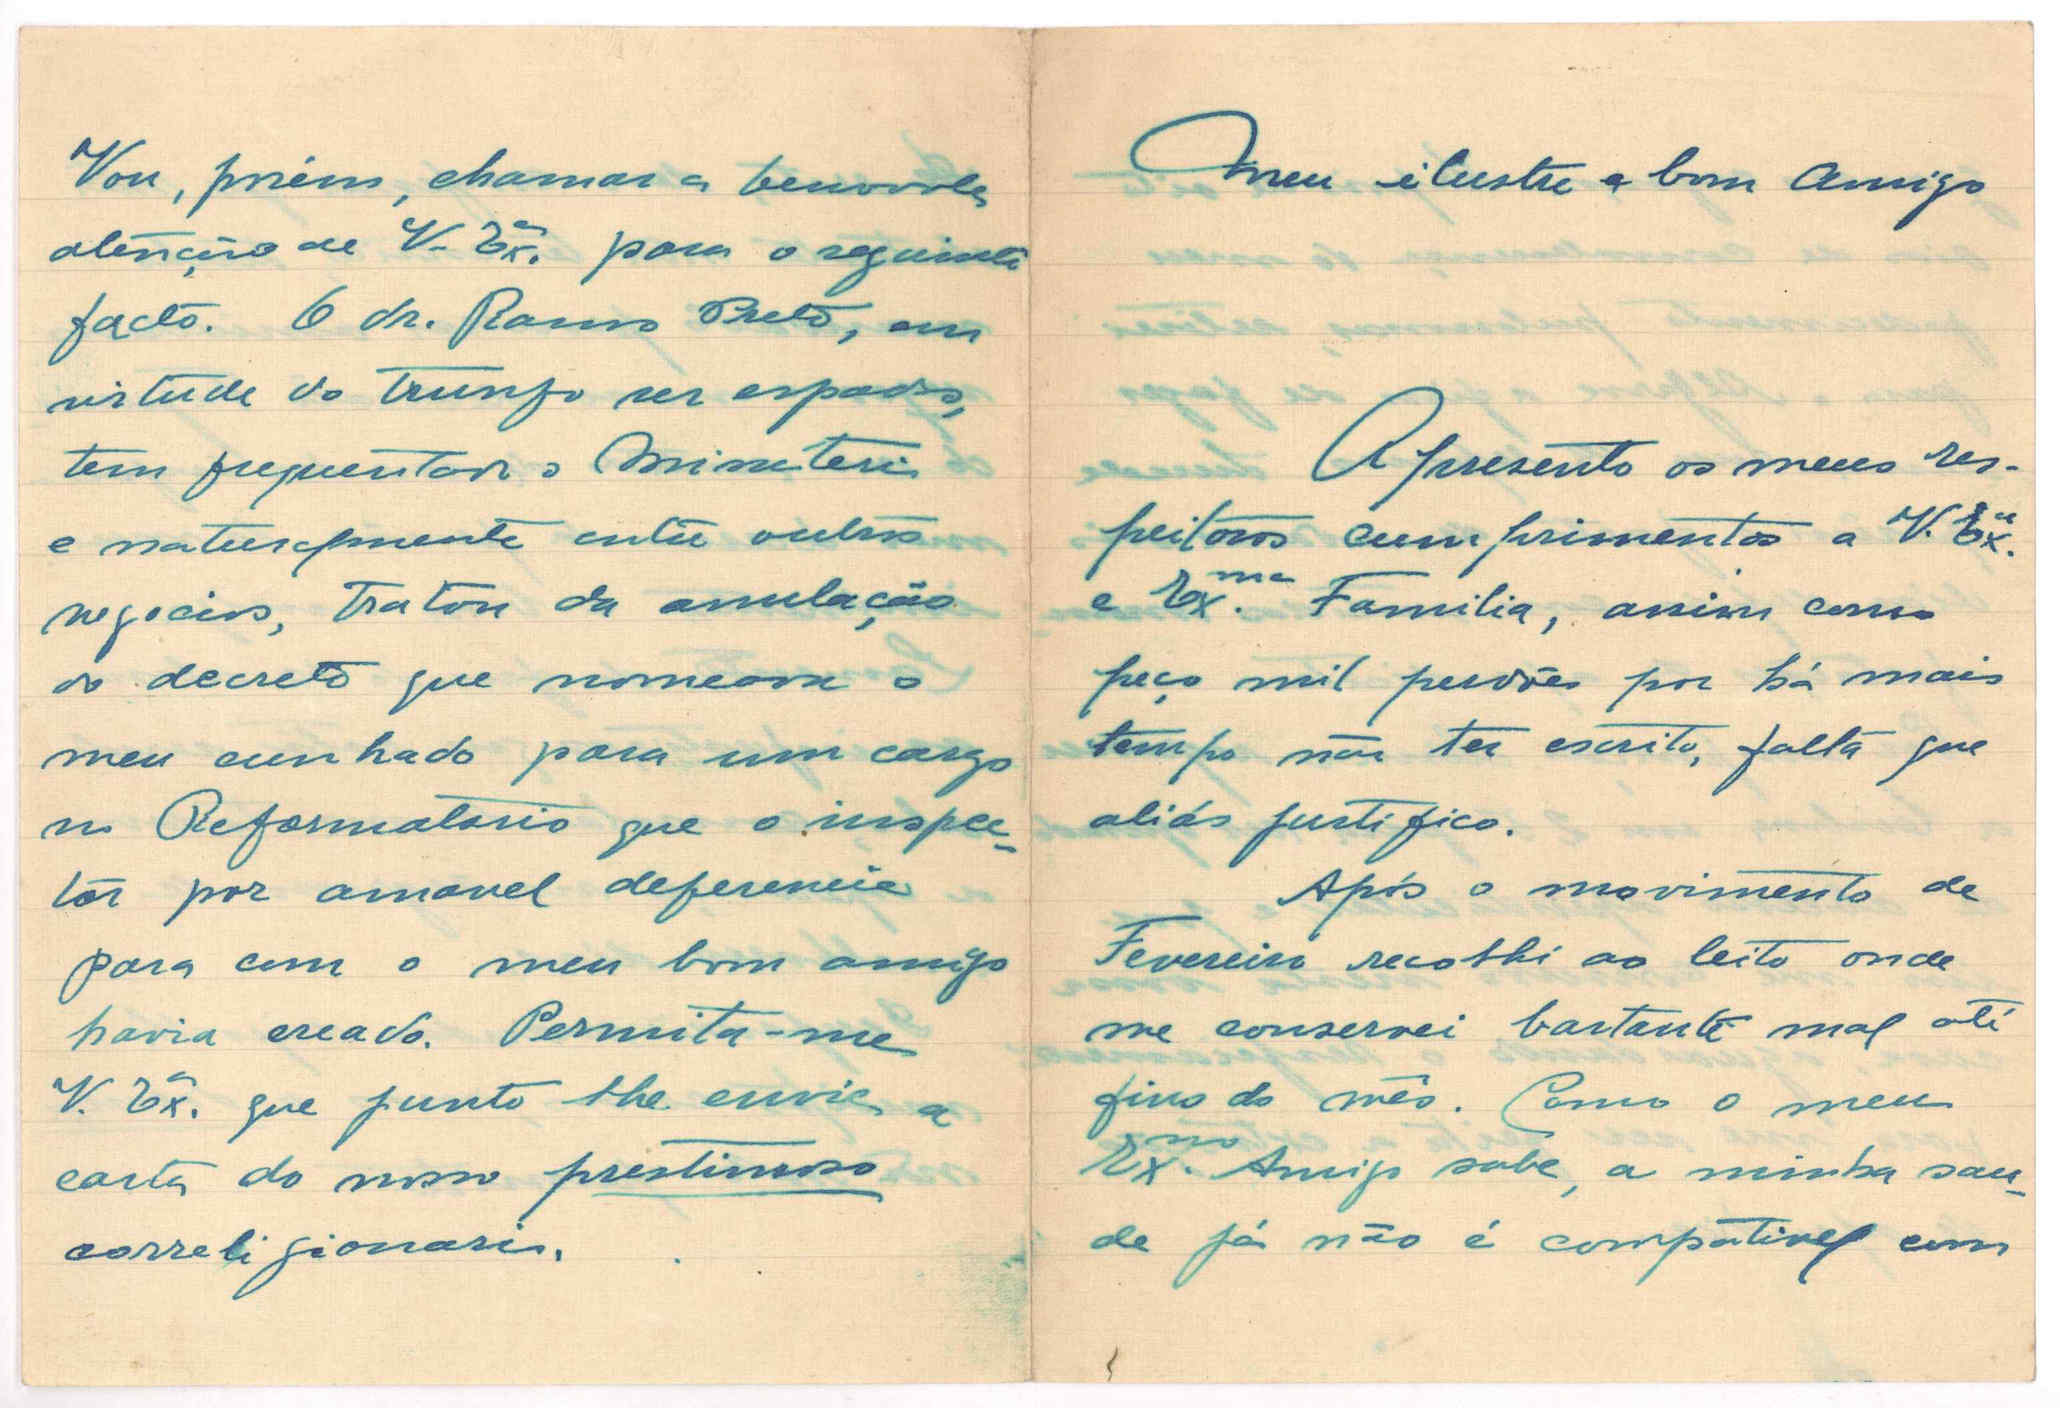 Vou, porém, chamar a benevola
atenção de V. Exª. para o seguinte
facto. O dr. Ramos Preto, em
virtude do trunfo ser espadas,
tem frequentado o Ministerio
e naturalmente entre outros
negocios, tratou da anulação
do decreto que nomeava o
meu cunhado para um cargo
no Reformatorio que o inspec-
tor por amavel deferencia
para com o meu bom amigo
havia creado. Permita-me
V. Exª. que junto lhe envie a
carta do nosso prestimoso
correligionario.
Meu ilustre e bom Amigo
Apresento os meus res-
peitosos cumprimentos a V. Exª.
e Exma. Familia, assim como
peço mil perdões por há mais
tempo não ter escrito, falta que
aliás justifico.
Após o movimento de
Fevereiro recolhi ao leito onde
me conservei bastante mal até
fins do mês. Como o meu
Exmo. Amigo sabe, a minha sau-
de já não é compativel com